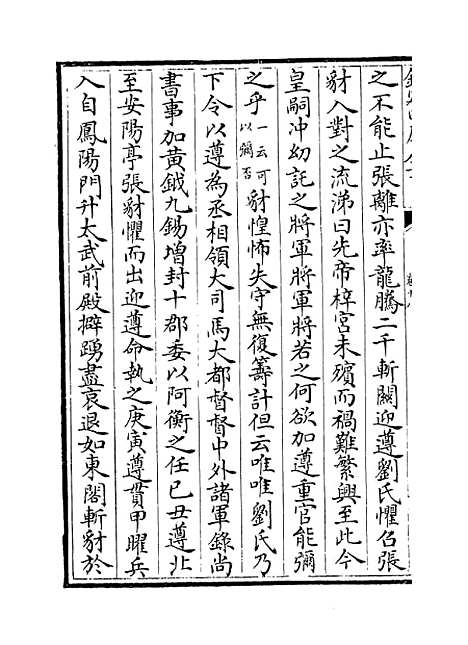 之不能止張離亦率龍騰二千斬關迎遵劉氏懼召張
豺入對之流涕曰先帝梓宮未殯而禍難繁興至此今
皇嗣冲幼託之將軍將軍將若之何欲加遵重官能彌
之乎一云可以彌否豺惶怖失守無復籌計但云唯唯劉氏乃
下令以遵為丞相領大司馬大都督督中外諸軍錄尚
書事加黃鉞九錫增封十郡委以阿衡之任已丑遵北
至安陽亭張豺懼而出迎遵命執之庚寅遵貫甲曜兵
入自鳳陽門升太武前殿擗踴盡哀退如東閣斬豺於